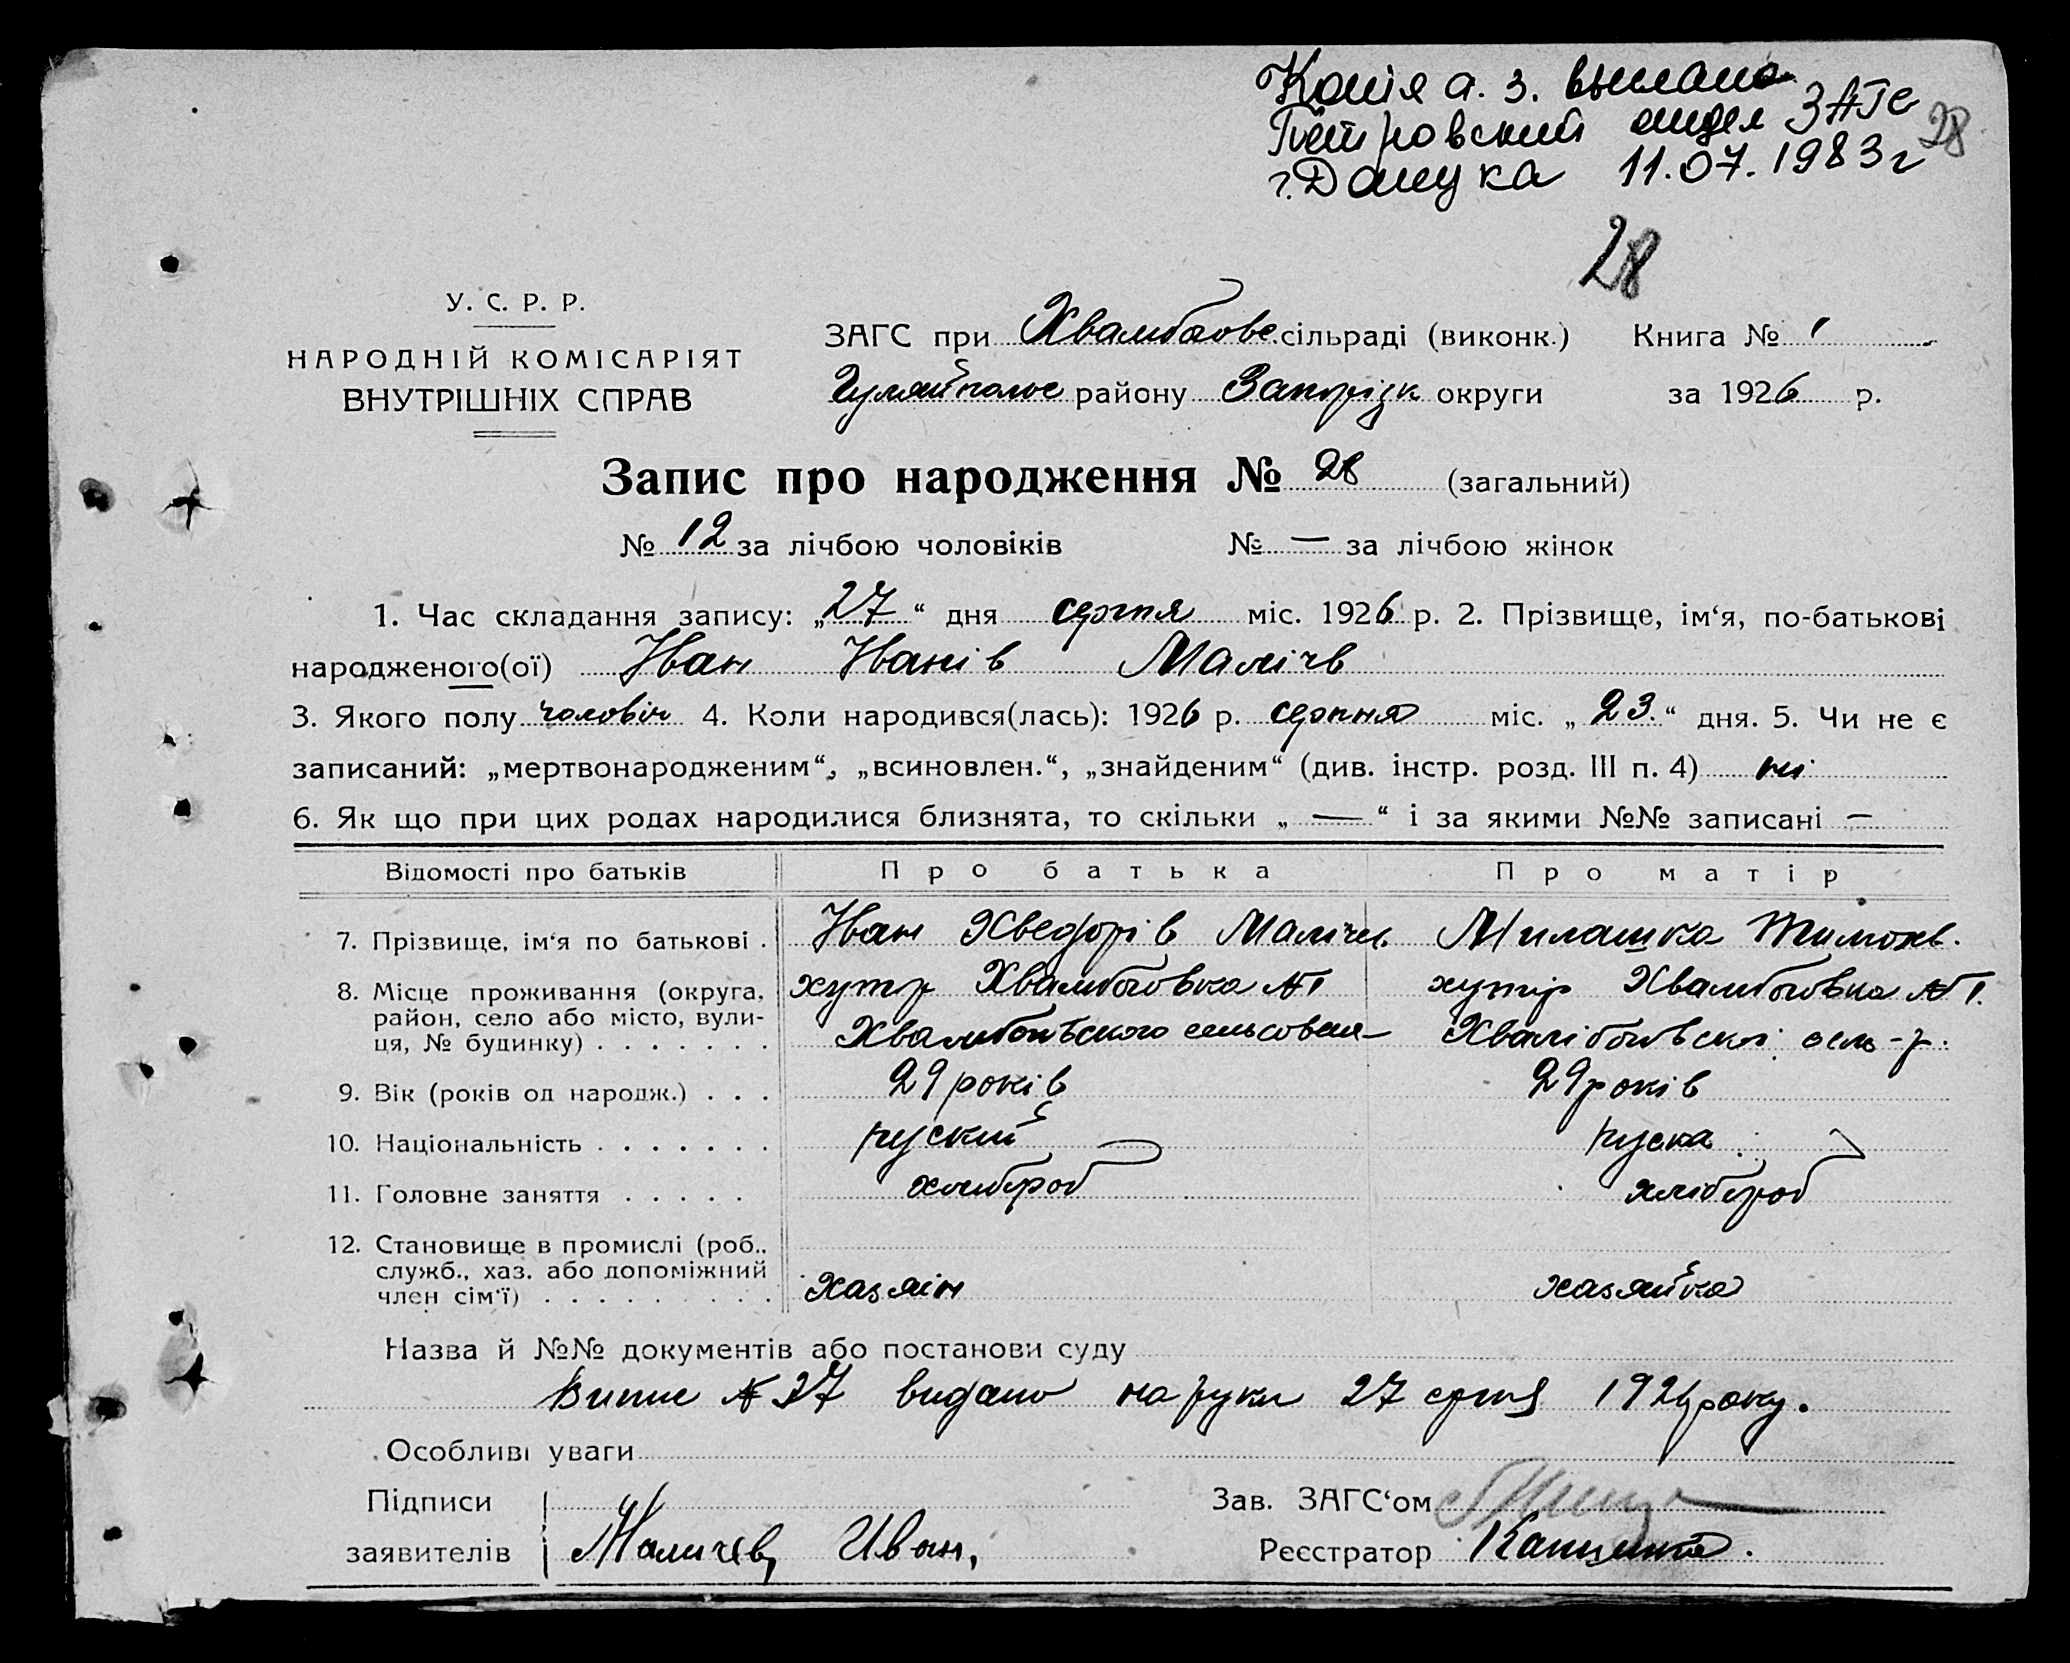 Копія а. з. выслана
Петровский отдел ЗАГС 28
г. Донецка 11.07.1983 г
28
У. С. Р. Р.
НАРОДНІЙ КОМІСАРІЯТ
ВНУТРІШНІХ СПРАВ
ЗАГС при сільраді (виконк.) Книга № 1
Гуляйпольс району Запорізк округи за 1926 р.
Запис про народження № 28 (загальний)
№ 12 за лічбою чоловіків № — за лічбою жінок
1. Час складання запису: „27“ дня серпня міс. 1926 р. 2. Прізвище, ім‘я, по-батькові
народженого(ої) Іван Іванів Малічв
3. Якого полу чоловіч 4. Коли народився(лась): 1926 р. серпня міс. „23.“ дня. 5. Чи не є
записаний: „мертвонародженим“, „всиновлен.“, „знайденим“ (див. інстр. розд. III п. 4) ні
6. Як що при цих родах народилися близнята, то скільки „—“ і за якими №№ записані —
Відомості про батьків Про батька Про матір
7. Прізвище, ім‘я по батькові . Іван Хведорів Малічев. Милашка Тимохв.
8. Місце проживання (округа, район, село або місто, вулиця, № будинку) . . . . . . . хутір №1 хутір №1.
9. Вік (років од народж.) . . . 29 років 29 років
10. Національність . . . . . . . руский руска
11. Головне заняття . . . . . хлібороб хлібороб
12. Становище в промислі (роб., служб., хаз. або допоміжний член сім‘ї) . . . . . . . . . хазяін хазяйка
Назва й №№ документів або постанови суду
Випис № 27 видано на руки 27 серпня 1926 року.
Особливі уваги
Підписи Зав. ЗАГС‘ом
заявителів Маличев, Иван, Реєстратор